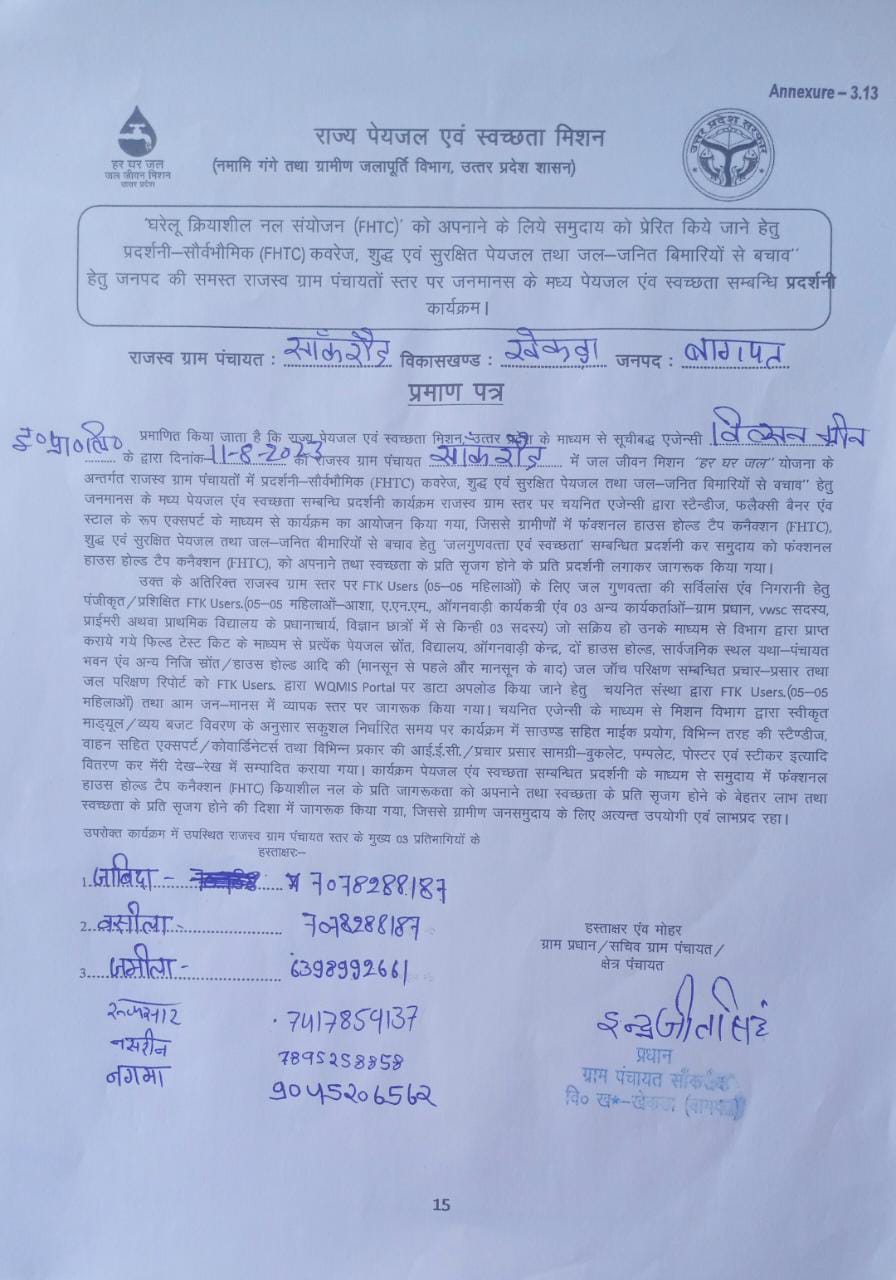 Annexure – 3.13
हर घर जल
जल जीवन मिशन
उत्तर प्रदेश
राज्य पेयजल एवं स्वच्छता मिशन
(नमामि गंगे तथा ग्रामीण जलापूर्ति विभाग, उत्तर प्रदेश शासन)
उत्तर प्रदेश सरकार
'घरेलू क्रियाशील नल संयोजन (FHTC)' को अपनाने के लिये समुदाय को प्रेरित किये जाने हेतु
प्रदर्शनी–सौर्वभौमिक (FHTC) कवरेज, शुद्ध एवं सुरक्षित पेयजल तथा जल–जनित बिमारियों से बचाव''
हेतु जनपद की समस्त राजस्व ग्राम पंचायतों स्तर पर जनमानस के मध्य पेयजल एंव स्वच्छता सम्बन्धि प्रदर्शनी
कार्यक्रम।
राजस्व ग्राम पंचायत : साँकरौद विकासखण्ड : खेकड़ा जनपद : बागपत
प्रमाण पत्र
प्रमाणित किया जाता है कि राज्य पेयजल एवं स्वच्छता मिशन, उत्तर प्रदेश के माध्यम से सूचीबद्ध एजेन्सी विल्सन ग्रीन
इ०प्रा०लि० के द्वारा दिनांक 11-8-2023 को राजस्व ग्राम पंचायत साँकरौद में जल जीवन मिशन "हर घर जल" योजना के
अन्तर्गत राजस्व ग्राम पंचायतों में प्रदर्शनी–सौर्वभौमिक (FHTC) कवरेज, शुद्ध एवं सुरक्षित पेयजल तथा जल–जनित बिमारियों से बचाव'' हेतु
जनमानस के मध्य पेयजल एंव स्वच्छता सम्बन्धि प्रदर्शनी कार्यक्रम राजस्व ग्राम स्तर पर चयनित एजेन्सी द्वारा स्टैन्डीज, फलैक्सी बैनर एंव
स्टाल के रूप एक्सपर्ट के माध्यम से कार्यक्रम का आयोजन किया गया, जिससे ग्रामीणों में फंक्शनल हाउस होल्ड टैप कनैक्शन (FHTC),
शुद्ध एवं सुरक्षित पेयजल तथा जल–जनित बीमारियों से बचाव हेतु 'जलगुणवत्ता एवं स्वच्छता' सम्बन्धित प्रदर्शनी कर समुदाय को फंक्शनल
हाउस होल्ड टैप कनैक्शन (FHTC), को अपनाने तथा स्वच्छता के प्रति सृजग होने के प्रति प्रदर्शनी लगाकर जागरूक किया गया।
उक्त के अतिरिक्त राजस्व ग्राम स्तर पर FTK Users (05–05 महिलाओं) के लिए जल गुणवत्ता की सर्विलांस एंव निगरानी हेतु
पंजीकृत/प्रशिक्षित FTK Users.(05–05 महिलाओं–आशा, ए.एन.एम., ऑगनवाड़ी कार्यकत्री एंव 03 अन्य कार्यकर्ताओं–ग्राम प्रधान, vwsc सदस्य,
प्राईमरी अथवा प्राथमिक विद्यालय के प्रधानाचार्य, विज्ञान छात्रों में से किन्ही 03 सदस्य) जो सक्रिय हो उनके माध्यम से विभाग द्वारा प्राप्त
कराये गये फिल्ड टेस्ट किट के माध्यम से प्रत्येंक पेयजल स्रोंत, विद्यालय, ऑगनवाड़ी केन्द्र, दों हाउस होल्ड, सार्वजनिक स्थल यथा–पंचायत
भवन एंव अन्य निजि स्रोंत/हाउस होल्ड आदि की (मानसून से पहले और मानसून के बाद) जल जाँच परिक्षण सम्बन्धित प्रचार–प्रसार तथा
जल परिक्षण रिपोर्ट को FTK Users. द्वारा WQMIS Portal पर डाटा अपलोड किया जाने हेतु चयनित संस्था द्वारा FTK Users.(05–05
महिलाओं) तथा आम जन–मानस में व्यापक स्तर पर जागरूक किया गया। चयनित एजेन्सी के माध्यम से मिशन विभाग द्वारा स्वीकृत
माड्यूल/व्यय बजट विवरण के अनुसार सकुशल निर्धारित समय पर कार्यक्रम में साउण्ड सहित माईक प्रयोग, विभिन्न तरह की स्टैण्डीज,
वाहन सहित एक्सपर्ट/कोवार्डिनेटर्स तथा विभिन्न प्रकार की आई.ई.सी./प्रचार प्रसार सामग्री–बुकलेट, पम्पलेट, पोस्टर एवं स्टीकर इत्यादि
वितरण कर मेंरी देख–रेख में सम्पादित कराया गया। कार्यक्रम पेयजल एंव स्वच्छता सम्बन्धित प्रदर्शनी के माध्यम से समुदाय में फंक्शनल
हाउस होल्ड टैप कनैक्शन (FHTC) कियाशील नल के प्रति जागरूकता को अपनाने तथा स्वच्छता के प्रति सृजग होने के बेहतर लाभ तथा
स्वच्छता के प्रति सृजग होने की दिशा में जागरूक किया गया, जिससे ग्रामीण जनसमुदाय के लिए अत्यन्त उपयोगी एवं लाभप्रद रहा।
उपरोक्त कार्यक्रम में उपस्थित राजस्व ग्राम पंचायत स्तर के मुख्य 03 प्रतिभागियों के
हस्ताक्षरः–
1. जाबिदा - 7078288187
2. वसीला - 7078288187
3. जमीला - 6398992661
रूकसार 7417859137
नसरीन 7895258858
नगमा 9045206562
हस्ताक्षर एंव मोहर
ग्राम प्रधान/सचिव ग्राम पंचायत/
क्षेत्र पंचायत
इन्द्रजीत सिंह
प्रधान
ग्राम पंचायत साँकरौद
वि० ख०-खेकडा (बागपत)
15